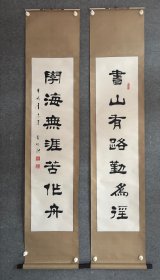 書山有路勤為徑
學海無涯苦作舟